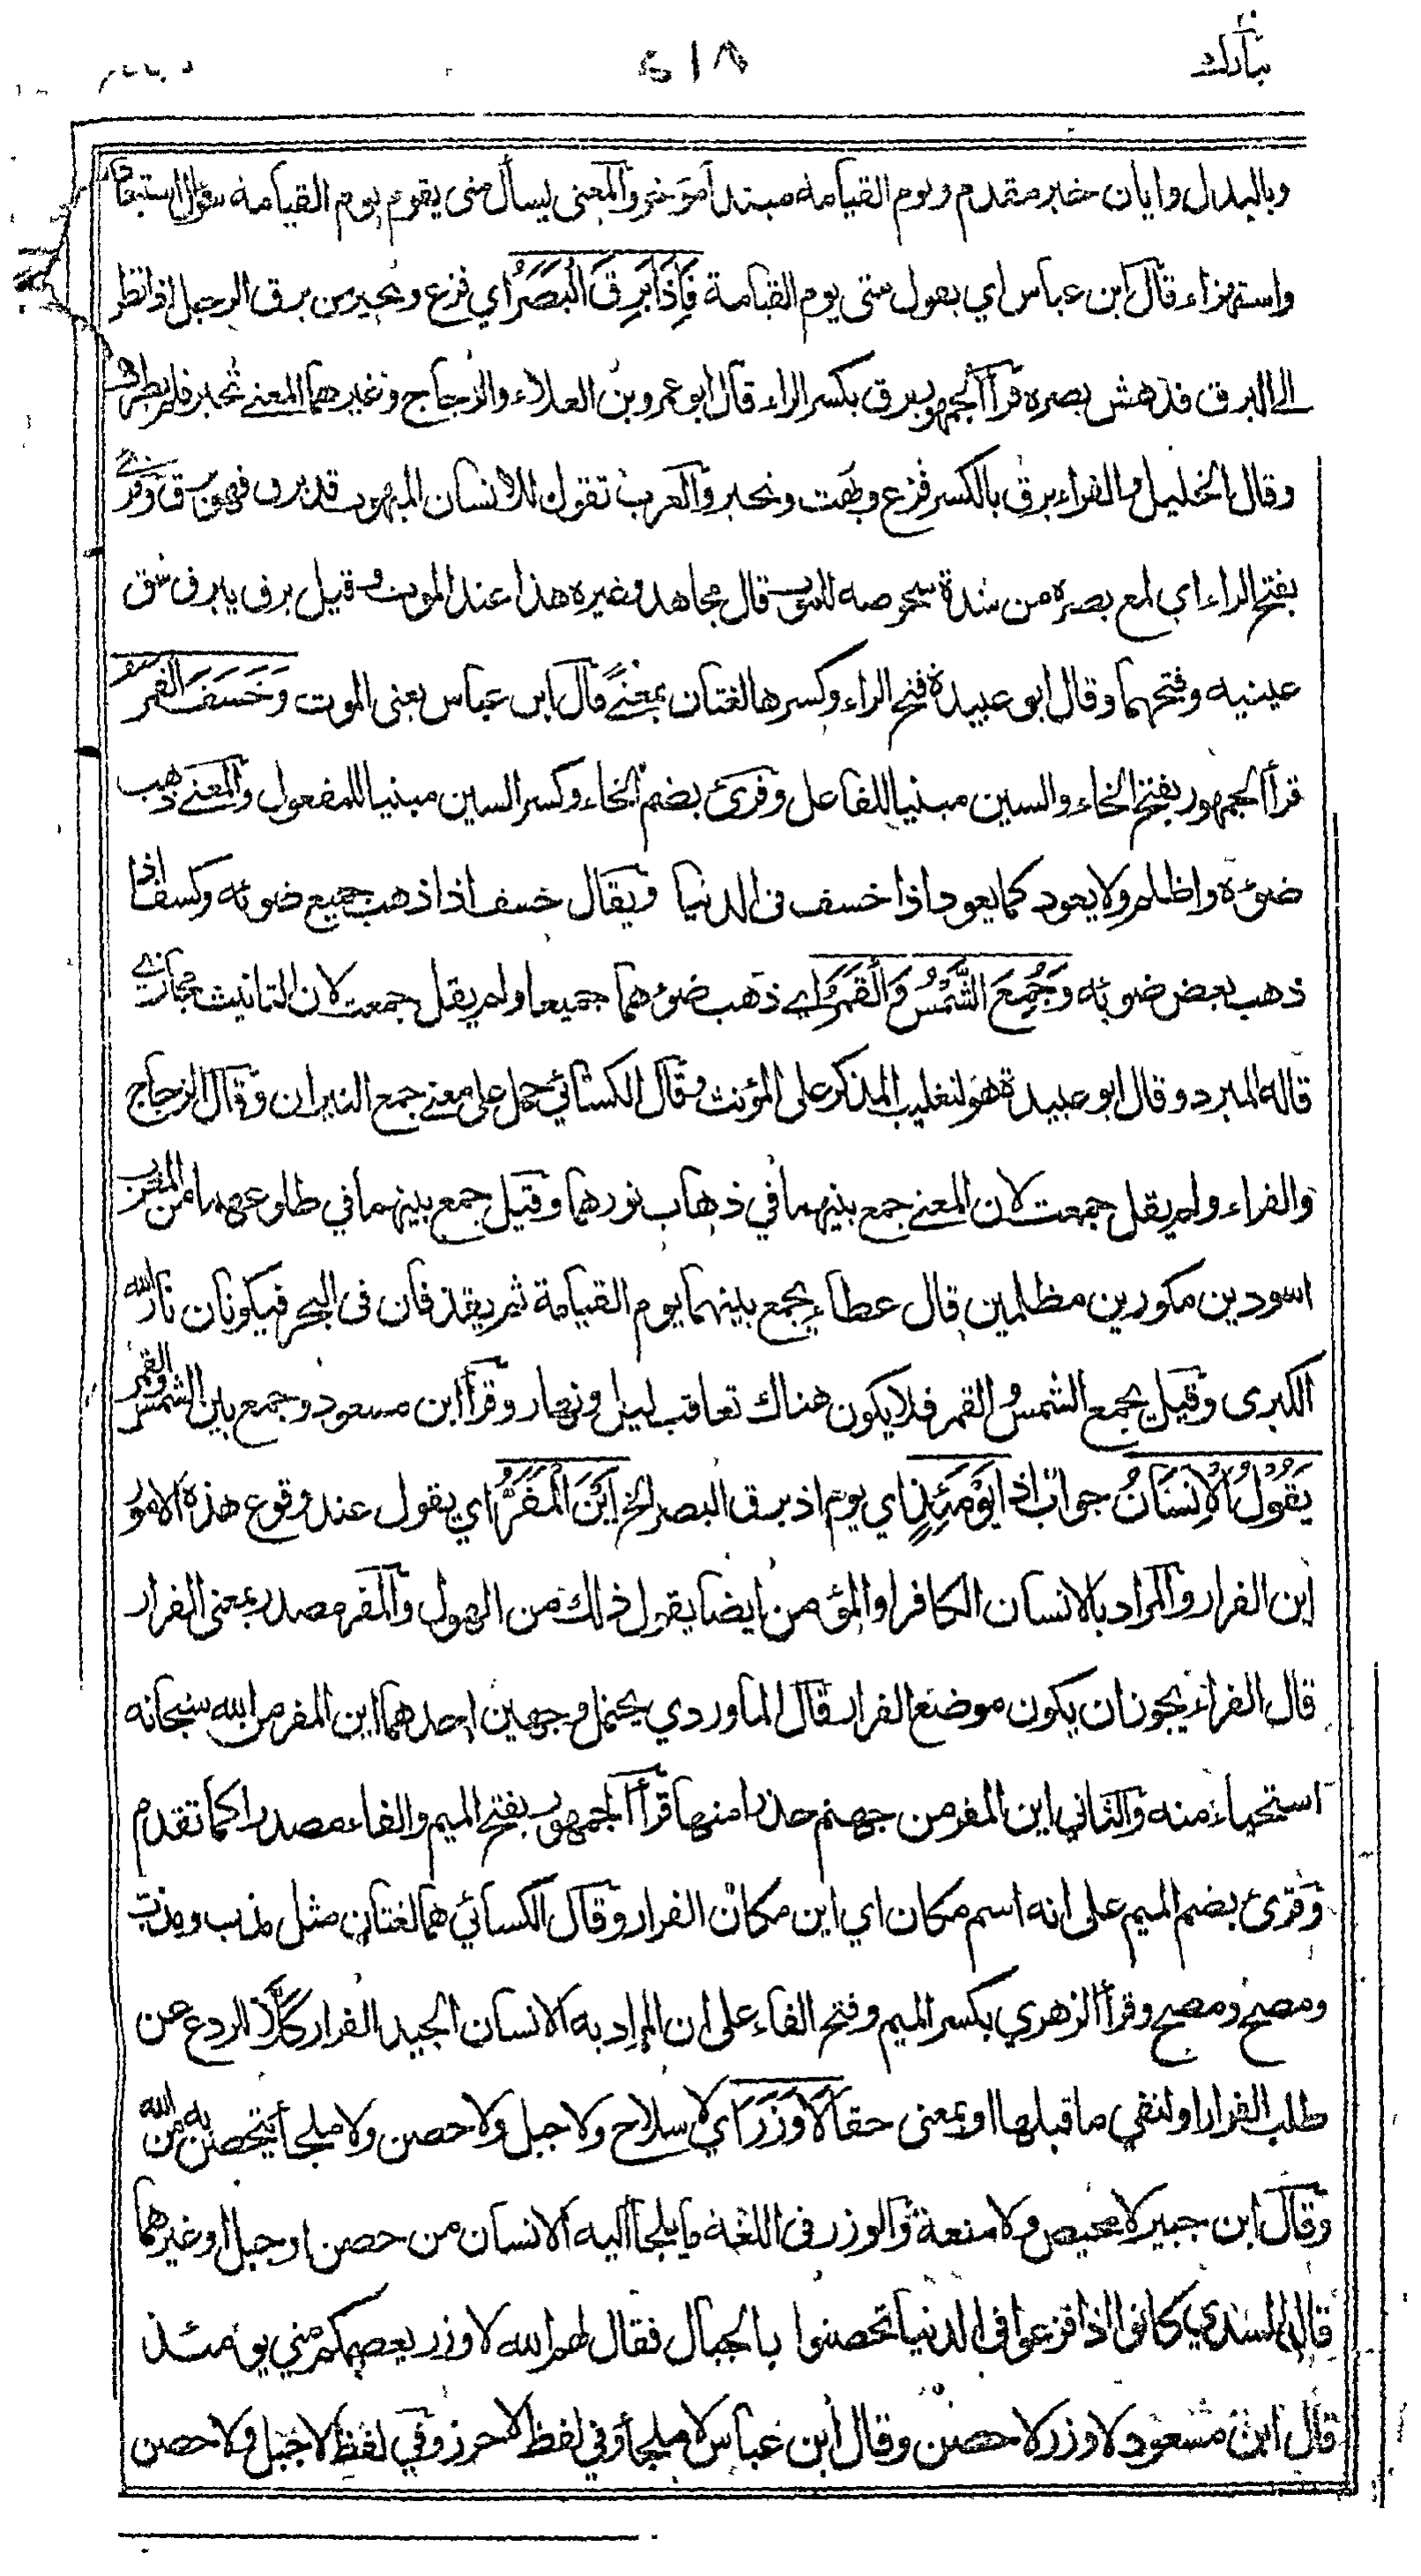 تبارك
وبالبدل وايان خبر مقدم ويوم القيامة مبتدأ مؤخر والمعنى يسأل متى يقوم يوم القيامة سؤال استبعاد
واستهزاء قال ابن عباس اي يقول متى يوم القيامة فَإِذَا بَرِقَ الْبَصَرُ اي فزع وتحير من برق الرجل اذا نظر
الى البرق فدهش بصره قرأ الجمهور برق بكسر الراء قال ابو عمرو بن العلاء والزجاج وغيرهما المعنى تحير فلم يطرف
وقال الخليل والفراء برق بالكسر فزع وبهت وتحير والعرب تقول للانسان المبهوت قد برق فهو برق وقرئ
بفتح الراء اي لمع بصره من شدة شخوصه للموت قال مجاهد وغيره هذا عند الموت وقيل برق يبرق شق
عينيه وفتحهما وقال ابو عبيدة فتح الراء وكسرها لغتان بمعنى قال ابن عباس يعني الموت وَخَسَفَ الْقَمَرُ
قرأ الجمهور بفتح الخاء والسين مبنيا للفاعل وقرئ بضم الخاء وكسر السين مبنيا للمفعول والمعنى ذهب
ضوءه واظلم ولا يعود كما يعود اذا خسف في الدنيا ويقال خسف اذا ذهب جميع ضوئه وكسف اذا
ذهب بعض ضوئه وَجُمِعَ الشَّمْسُ وَالْقَمَرُ اي ذهب ضوءهما جميعا ولم يقل جمعت لان التانيث مجازي
قاله المبرد وقال ابو عبيدة هو لتغليب المذكر على المؤنث وقال الكسائي حمل على معنى جمع النيران وقال الزجاج
والفراء ولم يقل جمعت لان المعنى جمع بينهما في ذهاب نورهما وقيل جمع بينهما في طلوعهما من المغرب
اسودين مكورين مظلمين قال عطاء يجمع بينهما يوم القيامة ثم يقذفان في البحر فيكونان نار الله
الكبرى وقيل يجمع الشمس والقمر فلا يكون هناك تعاقب ليل ونهار وقرأ ابن مسعود وجمع بين الشمس والقمر
يَقُولُ الْإِنْسَانُ جواب اذا يَوْمَئِذٍ اي يوم اذ برق البصر الخ أَيْنَ الْمَفَرُّ اي يقول عند وقوع هذه الامور
اين الفرار والمراد بالانسان الكافر او المؤمن ايضا يقول ذلك من الهول والمفر مصدر بمعنى الفرار
قال الفراء يجوز ان يكون موضع الفرار قال الماوردي يحتمل وجهين احدهما اين المفر من الله سبحانه
استحياء منه والثاني اين المفر من جهنم حذرا منها قرأ الجمهور بفتح الميم والفاء مصدرا كما تقدم
وقرئ بضم الميم على انه اسم مكان اي اين مكان الفرار وقال الكسائي هما لغتان مثل
ومصح ومصح وقرأ الزهري بكسر الميم وفتح الفاء على ان المراد به الانسان الجيد الفرار كَلَّا للردع عن
طلب الفرار او لنفي ما قبلها او بمعنى حقا لَا وَزَرَ اي لا سلاح ولا جبل ولا حصن ولا ملجأ يتحصن به من الله
وقال ابن جبير لا محيص ولا منعة والوزر في اللغة ما يلجأ اليه الانسان من حصن او جبل او غيرهما
قال السدي كانوا اذا فزعوا في الدنيا تحصنوا بالجبال فقال لهم الله لا وزر يعصمكم مني يومئذ
قال ابن مسعود لا وزر لا حصن وقال ابن عباس لا ملجأ وفي لفظ لا حرز وفي لفظ لا جبل ولا حصن